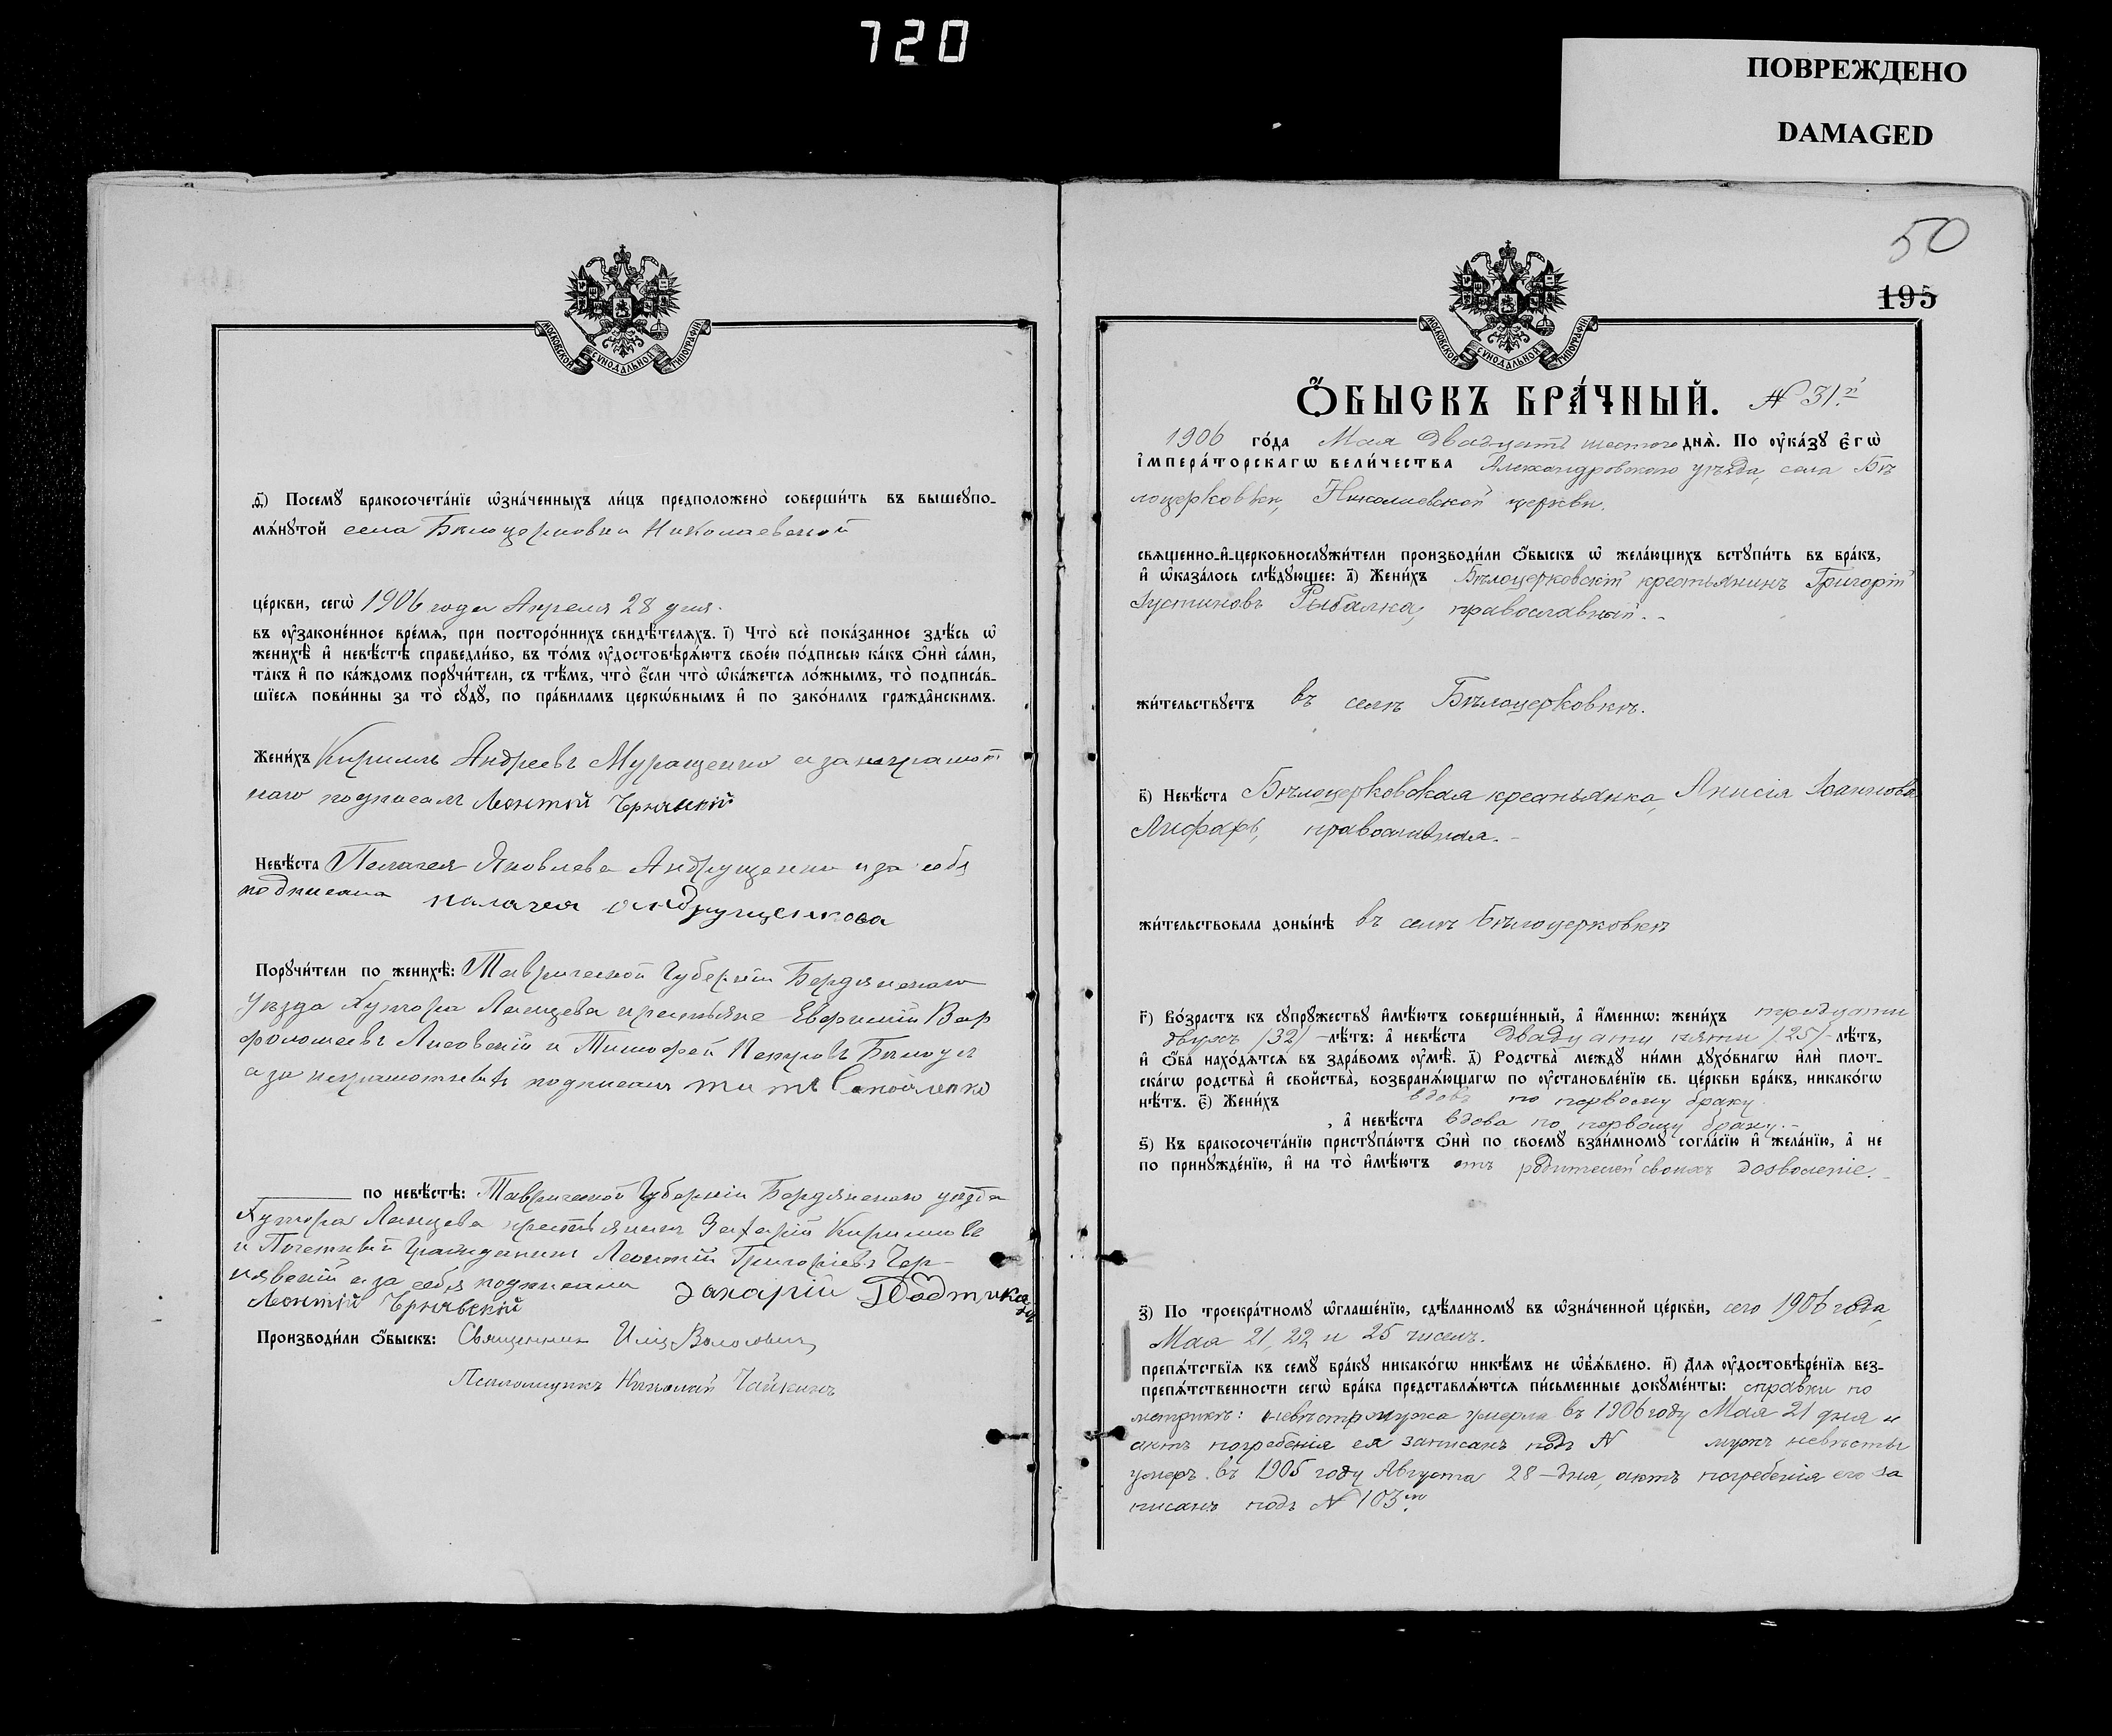 720
ПОВРЕЖДЕНО
DAMAGED
МОСКОВСКОЙ СѴНОДАЛЬНОЙ ТИПОГРАФІИ
ѳ҃) Посемꙋ̀ бракосочета́нїе ѡ҆зна́ченныхъ ли́цъ предположено̀ соверши́ть въ вышеꙋпо-
мѧ́нꙋтой села Бѣлоцерковки Николаевской
це́ркви, сегѡ̀ 1906 года Апреля 28 дня.
въ ᲂу҆законе́нное вре́мѧ, при посторо́ннихъ свидѣ́телѧхъ. і҃) Что̀ всѐ пока́занное здѣ́сь ѡ҆
женихѣ̀ и҆ невѣ́стѣ справедли́во, въ то́мъ ᲂу҆достовѣрѧ́ютъ свое́ю по́дписью ка́къ ѻ҆нѝ са́ми,
та́къ и҆ по ка́ждомъ порꙋчи́тели, съ тѣ́мъ, что̀ є҆́сли что̀ ѡ҆ка́жетсѧ ло́жнымъ, то̀ подписа́в-
шїесѧ пови́нны за то̀ сꙋдꙋ̀, по пра́виламъ церкѡ́внымъ и҆ по зако́намъ гражда̑нскимъ.
Жени́хъ Кириллъ Андреевъ Муращенко а за неграмот
наго подписалъ Леонтій Чернявскій
Невѣ́ста Пелагея Яковлева Андрущенко и за себя
подписала пилагея андрущенкова
Порꙋчи́тели по женихѣ̀: Таврической Губерніи Бердянскаго
Уѣзда Хутора крестьяне Евфимій Вар
фоломеевъ Лисовскій и Тимофей Петровъ
а за неграмотныхъ подписалъ Самойленко
по невѣ́стѣ: Таврической Губерніи Бердянскаго уѣзда
Хутора крестьянинъ Захарій Кириллове
и Почетный Гражданинъ Леонтій Григоріевъ Чер-
нявскій а за себя подписали Захарій
Леонтій Чернявскій
Производи́ли ѻ҆́быскъ: Священникъ Илія Волосовичъ
Псаломщикъ Николай Чайкинъ
50
195
МОСКОВСКОЙ СѴНОДАЛЬНОЙ ТИПОГРАФІИ
Ѻ҆́БЫСКЪ БРА́ЧНЫЙ. № 31й
1906 го́да Мая двадцать шестого днѧ̀. По ᲂу҆ка́зꙋ є҆гѡ̀
і҆мпера́торскагѡ вели́чества Александровскаго уѣзда, села Бѣ
лоцерковки, Николаевской церкви.
сващенно-и҆-церковнослꙋжи́тели производи́ли ѻ҆́быскъ ѡ҆ жела́ющихъ встꙋпи́ть въ бра́къ,
и҆ ѡ҆каза́лось слѣ́дꙋющее: а҃) Жени́хъ Бѣлоцерковскій крестьянинъ Григорій
Іустиновъ Рыбалка, православный.-
жи́тельствꙋетъ въ селѣ Бѣлоцерковкѣ.
в҃) Невѣ́ста Бѣлоцерковская крестьянка, Анисія Іоаннова
Лифарь, православная.-
жи́тельствовала доны́нѣ въ селѣ Бѣлоцерковкѣ
г҃) Во́зрастъ къ сꙋпрꙋ́жествꙋ и҆мѣ́ютъ соверше́нный, а҆ и҆́меннѡ: жени́хъ тридцати
двухъ /32/ -лѣ́тъ: а҆ невѣ́ста двадцати пяти /25/-лѣ́тъ,
и҆ ѻ҆́ба нахо́дѧтсѧ въ здра́вомъ ᲂу҆мѣ̀. д҃) Родства̀ междꙋ̀ ни́ми дꙋхо́внагѡ и҆лѝ плот-
ска́гѡ родства̀ и҆ сво́йства, возбранѧ́ющагѡ по ᲂу҆становле́нїю св. це́ркви бра́къ, никако́гѡ
нѣ́тъ. є҃) Жени́хъ вдовъ по первому браку
, а҆ невѣ́ста вдова по первому браку.-
ѕ҃) Къ бракосочета́нїю пристꙋпа́ютъ ѻ҆нѝ по своемꙋ̀ взаи́мномꙋ согла́сїю и҆ жела́нїю, а҆ не
по принꙋжде́нїю, и҆ на то̀ и҆мѣ́ютъ отъ родителей своихъ дозволеніе.-
з҃) По троекра́тномꙋ ѡ҆глаше́нїю, сдѣ́ланномꙋ въ ѡ҆зна́ченной це́ркви, сего 1906 года,
Мая 21, 22 и 25 чиселъ.
препѧ́тствїѧ къ семꙋ̀ бра́кꙋ никако́гѡ никѣ́мъ не ѡ҆б̾ѧ́влено. и҃) Длѧ ᲂу҆достовѣре́нїѧ без-
препѧ́тственности сегѡ̀ бра́ка представлѧ́ютсѧ пи́сьменные докꙋме́нты: справки по
метрикѣ: умерла въ 1906 году Мая 21 дня и
актъ погребенія ея записанъ подъ № мужъ невѣсты
умеръ въ 1905 году Августа 28-дня, актъ погребенія его за
писанъ подъ № 103мъ.